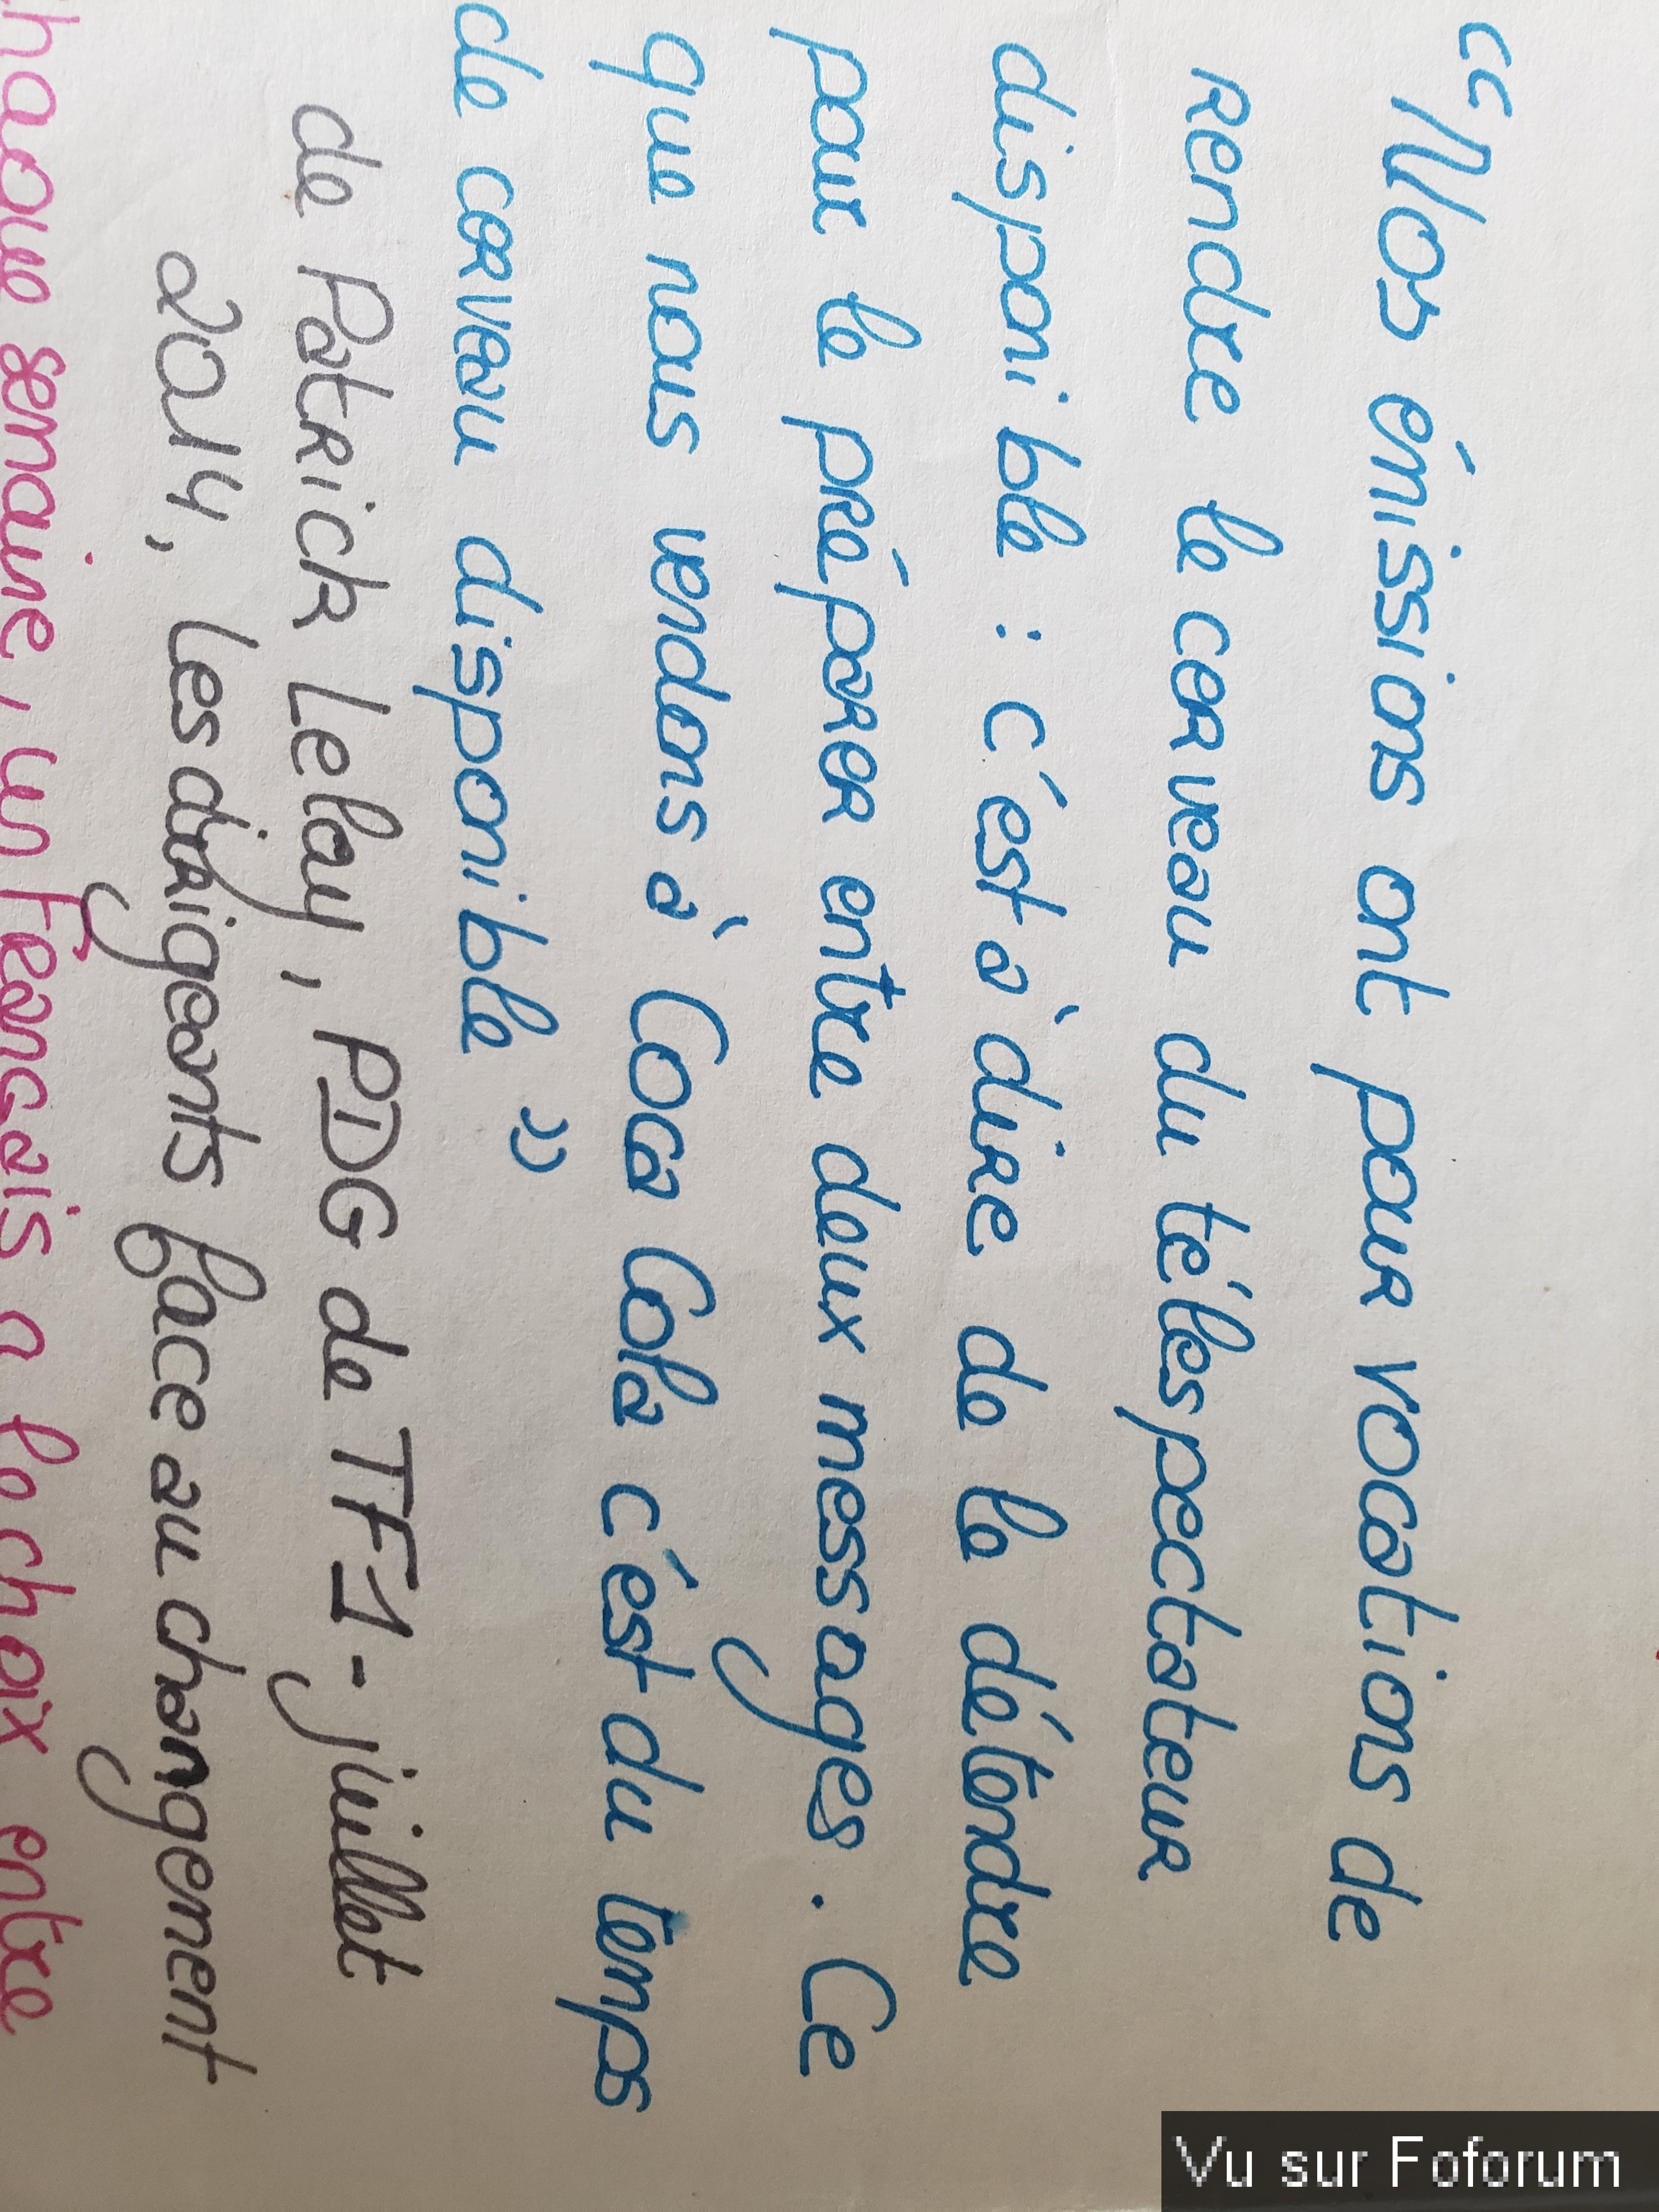 “Nos émissions ont pour vocations de
rendre le cerveau du téléspectateur
disponible : c'est à dire de le détendre
pour le préparer entre deux messages. Ce
que nous vendons à Coca Cola c'est du temps
de cerveau disponible”
de Patrick Lelay, PDG de TF1 - juillet
2014, les dirigeants face au changement
haque semaine, un Français a le choix entre
Vu sur Foforum